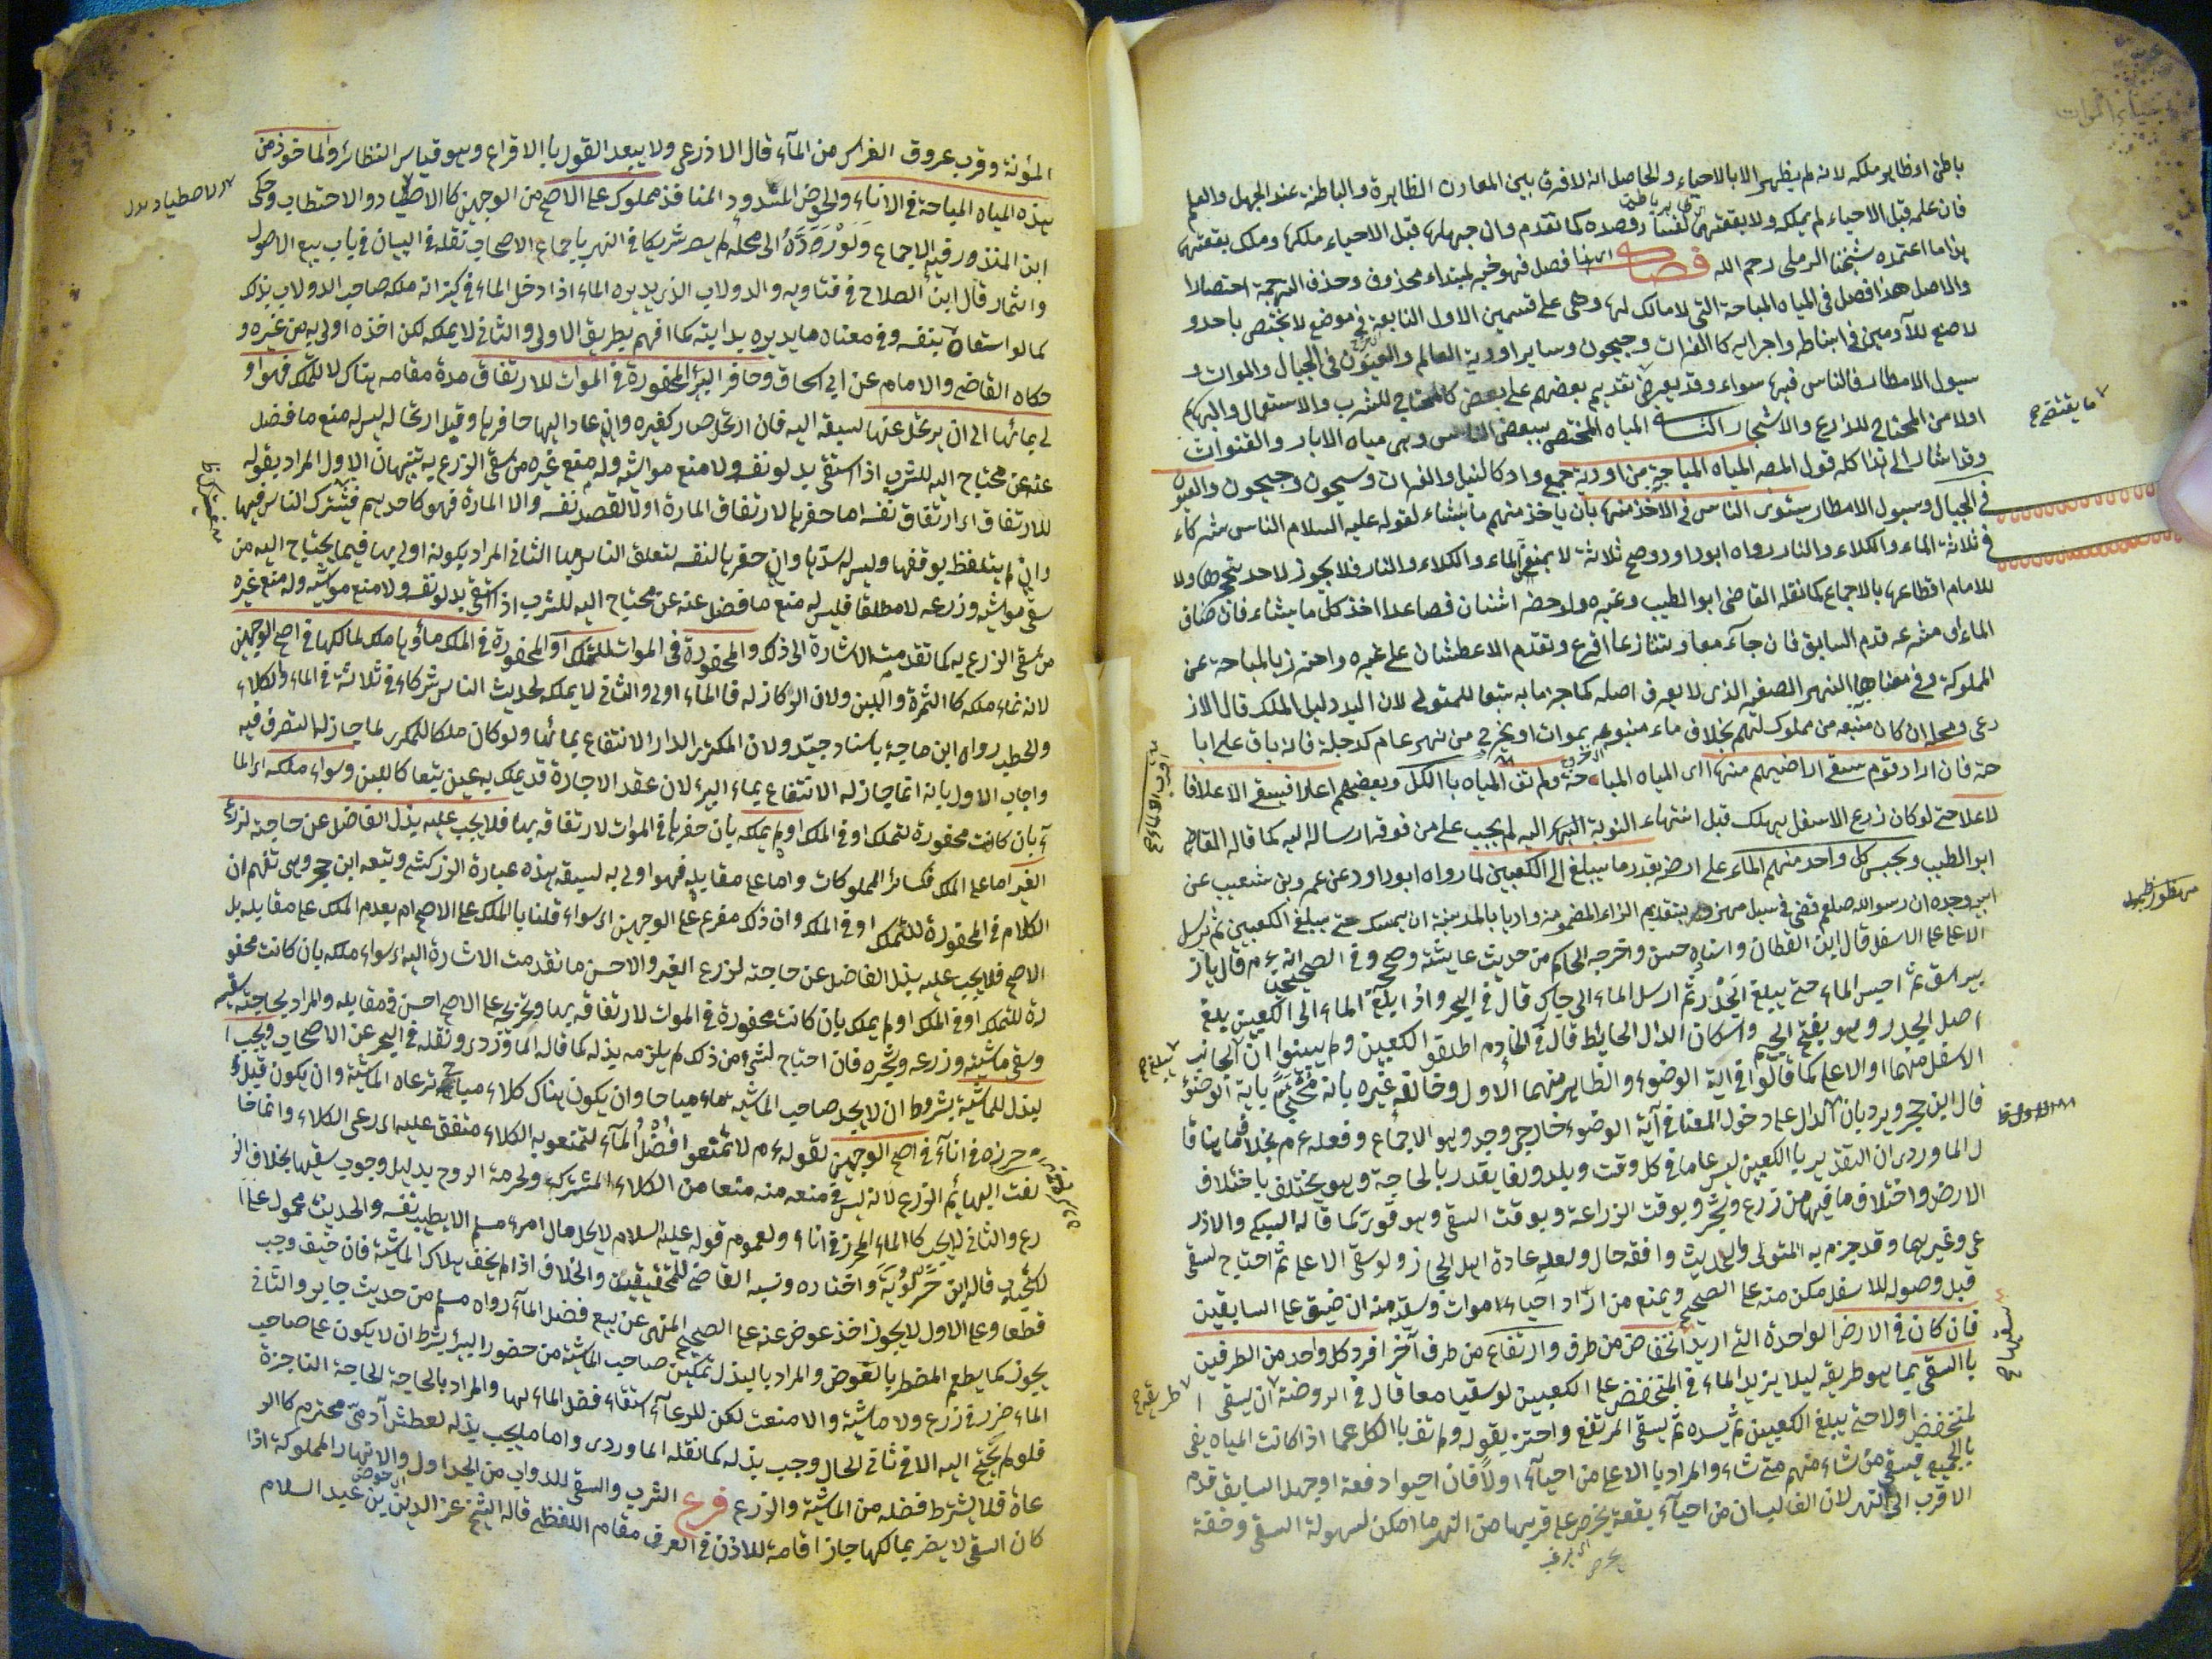 احياء الموات
باطن او ظاهر ملكه لانه لم يظهر الا بالاحياء والحاصل انه لا فرق بين المعادن الظاهرة والباطنة عند الجهل والعلم
فان علمه قبل الاحياء لم يملكه ولا بقعته لفساد قصده كما تقدم وان جهلها قبل الاحياء ملكها وملك بقعتها
هذا ما اعتمده شيخنا الرملي رحم الله فصل اي هذا فصل فهو خبر لمبتداء محذوف وحذف الترجمة اختصارا
والاصل هذا فصل في المياه المباحة التي لا مالك لها وهي على قسمين الاول النابعة في موضع لا يختص باحد و
لا صنع للآدميين في انباطه واجرايه كالفرات وجيحون وساير اودية العالم والعيون في الجبال والموات و
سيول الامطار فالناس فيها سواء وقد يعرض تقديم بعضهم على بعض كالمحتاج للشرب والاستعمال والبهايم
اولا من المحتاج للمزارع والاشجار الثاني المياه المختص ببعض الناس وهي مياه الابار والقنوات
وقد اشار الى هذا كله قول المص المياه المباحة من اودية جمع واد كالنيل والفرات وسيحون وجيحون والعيون
في الجبال وسيول الامطار يستوي الناس في الاخذ منها بان ياخذ منهم ما يشاء لقوله عليه السلام الناس شركاء
في ثلاثة الماء والكلاء والنار رواه ابو داود وصح ثلاثة لا يمنعن الماء والكلاء والنار فلا يجوز لاحد تحجرها ولا
للامام اقطاعها بالاجماع كما نقله القاضي ابو الطيب وغيره ولو حضر اثنان فصاعدا اخذ كل ما يشاء فان ضاق
الماء او مشرعه قدم السابق فان جآء معا وتنازعا اقرع وتقدم الاعطشان على غيره واحترز بالمباحة عن
المملوكة وفي معناها النهر الصغير الذي لا يعرف اصله كما جزما به تبعا للمتولي لان اليد دليل الملك قال الاذ
رعي ومحله ان كان منبعه من مملوك لهم بخلاف ماء منبوعه بموات او يخرج من نهر عام كدجلة فانه باق على ابا
حته فان اراد قوم سقي اراضيهم منها اي المياه المباحة ولم تف المياه بالكل وبعضهم اعلا فيسقي الاعلا فا
لاعلا حتى لو كان زرع الاسفل يهلك قبل انتهاء النوبة اليه لم يجب على من فوقه ارساله اليه كما قاله القاضي
ابو الطيب وحبس كل واحد منهم الماء على ارضه بقدر ما يبلغ الى الكعبين لما رواه ابو داود عن عمرو بن شعيب عن
ابيه وجده ان رسول الله صلعم قضى في سيل مهزور بتقديم الزاء المضمومة واديا بالمدينة ان يمسك حتى يبلغ الكعبين ثم يرسل
الاعلا على الاسفل قال ابن القطان واسناده حسن واخرجه الحاكم من حديث عايشة وصححه وفي الصحيحين انه ءم قال يا ز
بير اسق ثم احبس الماء حتى يبلغ الجدر ثم ارسل الماء الى جارك قال في البحر واذا بلغ الماء الى الكعبين بلغ
اصل الجدر وهو بفتح الجيم واسكان الدال الحايط قال في الخادم اطلقوا الكعبين ولم يبينوا ان الجانب
الاسفل منهما او الاعلى كما قالوا في اية الوضوء والظاهر منهما الاول وخالفه غيره بانه باية الوضوء
قال ابن حجر ويرد بان الدال على دخول المغيا في آية الوضوء خارجي وجد وهو الاجماع وفعله ءم بخلافه هنا قا
ل الماوردي ان التقدير بالكعبين ليس عاما في كل وقت وبلد وانما يقدر بالحاجة وهو يختلف باختلاف
الارض واختلاف ما فيها من زرع وشجر وبوقت الزراعة وبوقت السقي وهو قوي كما قاله السبكي والاذر
عي وغيرهما وقد جزم به المتولي والحديث وافقه حال ولعله عادة اهل الحجاز ولو سقي الاعلا ثم احتاج لسقي
قبل وصوله للاسفل مكن منه على الصحيح ويمنع من اراد احياء موات وسقيه منه ان ضيق على السابقين
فان كان في الارض الواحدة التي اريد انخفاض من طرف وارتفاع من طرف آخر افرد كل واحد من الطرفين
بالسقي بما هو طريقه ليلا يزيد الماء في المنخفض على الكعبين لو سقيا معا قال في الروضة ان يسقي ا
لمنخفض اولا حتى يبلغ الكعبين ثم يسده ثم يسقي المرتفع واحترز بقوله ولم تف بالكل عما اذا كانت المياه يفي
بالجميع فيسقي من شاء منهم متى شاء والمراد بالاعلا من احيآء اولا فان احيوا دفعة او جهل السابق قدم
الاقرب الى النهر لان الغالب ان من احيآء بقعة يحرص على قربها من النهر ما امكن لسهولة السقي وخفة
المؤنة وقرب عروق الغراس من المآء قال الاذرعي ولا يبعد القول بالاقراع وهو قياس النظائر والماخوذ من
هذه المياه المباحة في الاناء والحوض المسدود المنافذ مملوك على الاصح من الوجهين كالاصطياد والاحتطاب وحكى
ابن المنذر فيه الاجماع ولو رده الى محله لم يصر شريكا في النهر باجماع الاصحاب نقله في البيان في باب بيع الاصول
والثمار قال ابن الصلاح في فتاويه والدولاب الذي يديره الماء اذا دخل الماء في كيزانه ملكه صاحب الدولاب بذلك
كما لو استقاه بنفسه وفي معناه ما يديره بدابته كما افهم بطريق الاولى والثاني لا يملكه لكن اخذه اولى به من غيره و
حكاه القاضي والامام عن ابي اسحاق وحافر البئر المحفورة في الموات للارتفاق مدة مقامه هناك لا للتملك فهو او
لى بمائها الى ان يرتحل عنها لسبقه اليه فان ارتحل صار كغيره وان عاد اليها حافرها وقبل ارتحاله ليس له منع ما فضل
عنه عن محتاج اليه للشرب اذا استقى بدلو نفسه ولا منع مواشيه وله منع غيره من سقي الزرع به تنبيهان الاول المراد بقوله
للارتفاق اي ارتفاق نفسه اما حفرها لارتفاق المارة اولا لقصد نفسه والا المارة فهو كاحدهم فيشترك الناس فيها
وان لم يتلفظ بوقفها وليس له سدها وان حفرها لنفسه لتعلق الناس بها الثاني المراد بكونه اولى بها فيما يحتاج اليه من
سقي مواشيه وزرعه لا مطلقا فليس له منع ما فضل عنه عن محتاج اليه للشرب اذا استقى بدلو نفسه ولا منع مواشيه وله منع غيره
من سقي الزرع به كما تقدمت الاشارة الى ذلك والمحفورة في الموات للتملك او المحفورة في الملك مآؤها ملك لمالكها في اصح الوجهين
لانه نماء ملكه كالثمرة واللبن ولان الركاز له فالماء اولى والثاني لا يملكه لحديث الناس شركاء في ثلاثة في الماء والكلاء
والحطب رواه ابن ماجة باسناد جيد ولان المكتري الدار الانتفاع بمائها ولو كان ملكا للمكري لما جاز له التصرف فيه
واجاب الاول بانه انما جاز له الانتفاع بماء البئر لان عقد الاجارة قد يملك به عين تبعا كاللبن وسواء ملكه اي الما
ء بان كانت محفورة لتملك او في الملك او لم يملكه بان حفرها في الموات لارتفاقه بها فلا يجب عليه بذل الفاضل عن حاجته لزرع
الغير اما على الملك فكسائر المملوكات واما على مقابله فهو اولى به لسبقه هذه عبارة الزركشي وتبعه ابن حجر وهي تفهم ان
الكلام في المحفورة للتملك او في الملك وان ذلك مفرع على الوجهين اي سواء قلنا بالملك على الاصح ام بعدم الملك على مقابله بل
الاصح فلا يجب عليه بذل الفاضل عن حاجته لزرع الغير والاحسن ما تقدمت الاشارة اليه اي سواء ملكه بان كانت محفو
رة للتملك او في الملك او لم يملك بان كانت محفورة في الموات لارتفاقه بها وتخريجه على الاصح احسن في مقابله والمراد بحاجته سقيه
وسقي ماشيته وزرعه وشجره فان احتاج لشيء من ذلك لم يلزمه بذله كما قاله الماوردي ونقله في البحر عن الاصحاب ويجب ا
لبذل للماشية بشروط ان لا يجد صاحب الماشية ماء مباحا وان يكون هناك كلاء مباح ترعاه الماشية وان يكون قبل
وحرزه في انآء في اصح الوجهين لقوله ءم لا تمنعوا فضل المآء لتمنعوا به الكلاء متفق عليه اي رعي الكلاء وانما خا
لفت البهائم الزرع لانه ليس في منعه منه منعا من الكلاء المشترك ولحرمة الروح بدليل وجوب سقيها بخلاف الز
رع والثاني لا يجب كالماء المحرز في اناء ولعموم قوله عليه السلام لا يحل مال امرء مسلم الا بطيب نفسه والحديث محمول على ا
قاله ابن واختاره ونسبه القاضي للمحققين والخلاف اذا لم يخف هلاك الماشية فان خيف وجب
قطعا وعلى الاول لا يجوز اخذ عوض عنه على الصحيح المنهي عن بيع فضل المآء رواه مسلم من حديث جابر والثاني
يجوز كما يطعم المضطر بالعوض والمراد بالبذل تمكين صاحب الماشية من حضور البئر بشرط ان لا يكون على صاحب
الماء ضرر في زرع ولا ماشية والا منعت لكن للرعاء استقاء فضل الماء لها والمراد بالحاجة الحاجة الناجزة
فلو لم يحتج اليه الا في ثاني الحال وجب بذله كما نقله الماوردي واما ما يجب بذله لعطش آدمي محترم كالر
عاة فلا يشترط فضله من الماشية والزرع فرع الشرب والسقي للدواب من الجداول والانهار المملوكة اذا
كان السقي لا يضر بمالكها جاز اقامة للاذن في العرف مقام اللفظي قاله الشيخ عز الدين بن عبد السلام